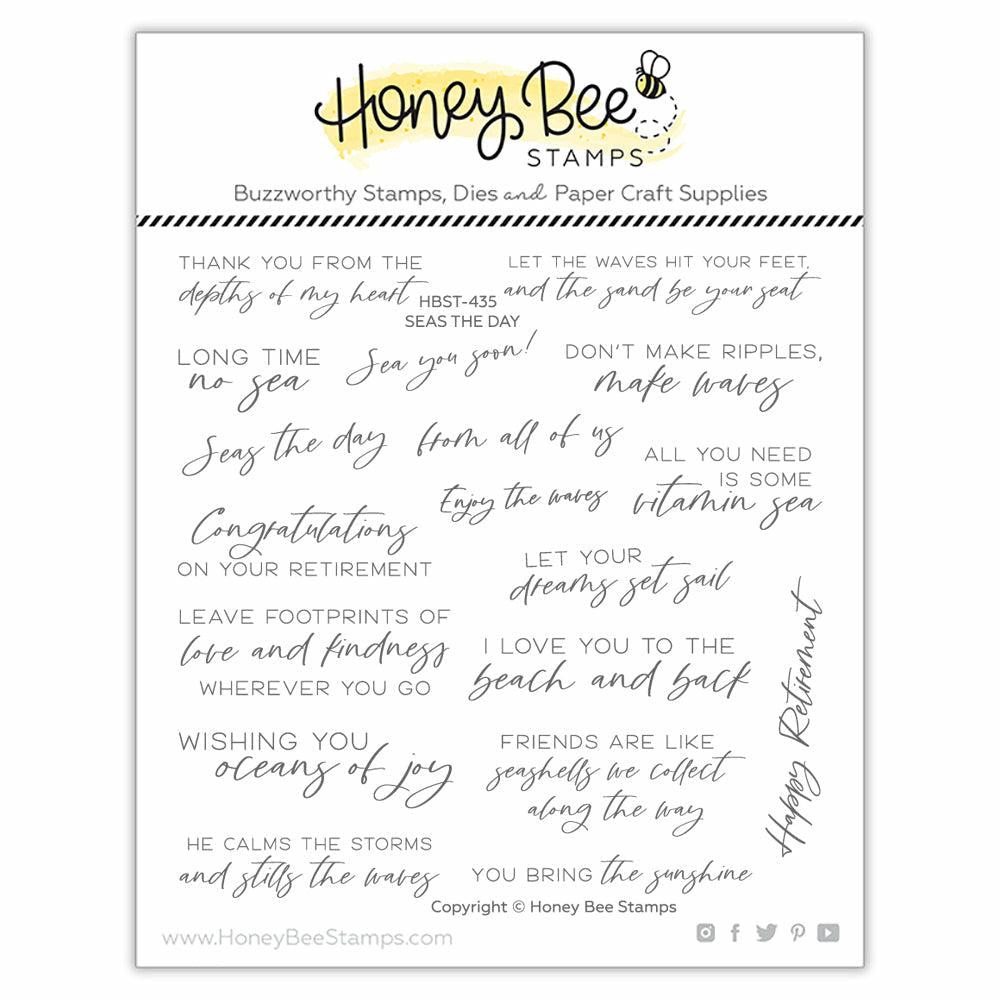 Honey Bee
STAMPS
Buzzworthy Stamps, Dies and Paper Craft Supplies
THANK YOU FROM THE
depths of my heart
LET THE WAVES HIT YOUR FEET,
and the sand be your seat
HBST-435
SEAS THE DAY
LONG TIME
no sea
Sea you soon!
DON'T MAKE RIPPLES,
make waves
Seas the day
from all of us
ALL YOU NEED
IS SOME
vitamin sea
Enjoy the waves
Congratulations
ON YOUR RETIREMENT
LET YOUR
dreams set sail
LEAVE FOOTPRINTS OF
love and kindness
WHEREVER YOU GO
I LOVE YOU TO THE
beach and back
Happy Retirement
WISHING YOU
oceans of joy
FRIENDS ARE LIKE
seashells we collect
along the way
HE CALMS THE STORMS
and stills the waves
YOU BRING the sunshine
Copyright © Honey Bee Stamps
www.HoneyBeeStamps.com